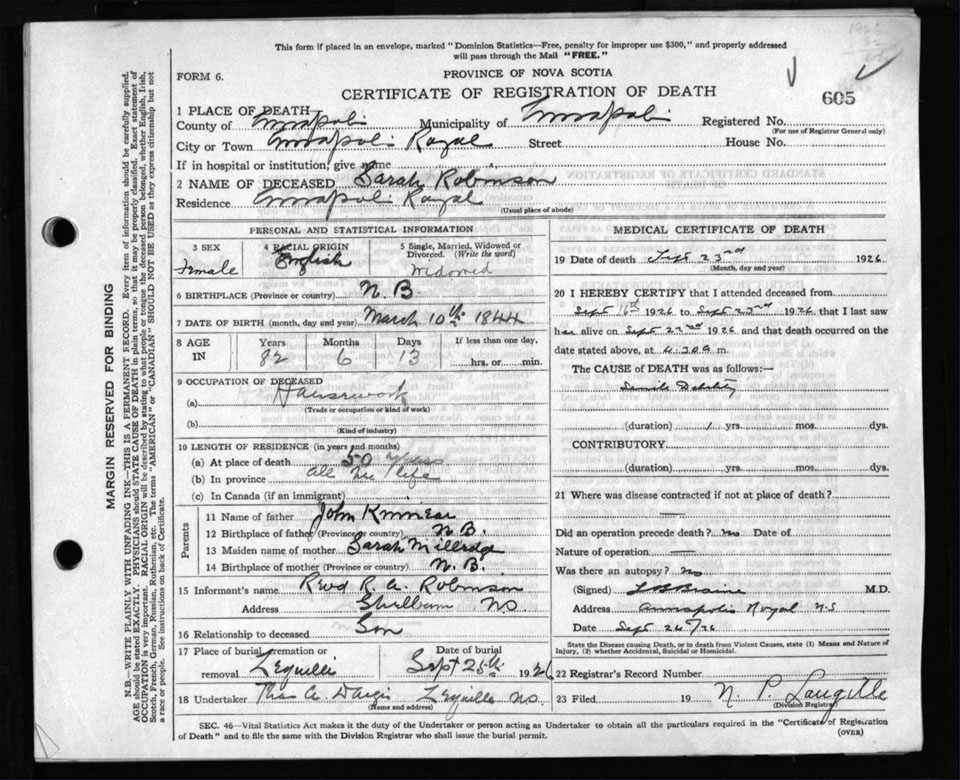 This form if placed in an envelope, marked "Dominion Statistics—Free, penalty for improper use $300," and properly addressed
will pass through the Mail "FREE."
FORM 6.
PROVINCE OF NOVA SCOTIA
CERTIFICATE OF REGISTRATION OF DEATH
605
1 PLACE OF DEATH
County of Annapolis Municipality of Annapolis Registered No.
(For use of Registrar General only)
City or Town Annapolis Royal Street House No.
If in hospital or institution, give name
2 NAME OF DECEASED Sarah Robinson
Residence Annapolis Royal
(Usual place of abode)
PERSONAL AND STATISTICAL INFORMATION
3 SEX
Female
4 RACIAL ORIGIN
English
5 Single, Married, Widowed or
Divorced. (Write the word)
Widowed
6 BIRTHPLACE (Province or country) N.B
7 DATE OF BIRTH (month, day end year) March 10th 1844
8 AGE IN
Years Months Days If less than one day,
82 6 13 hrs. or min.
9 OCCUPATION OF DECEASED
(a) Housework
(Trade or occupation or kind of work)
(b)
(Kind of industry)
10 LENGTH OF RESIDENCE (in years and months)
(a) At place of death 50 years
(b) In province all her life
(c) In Canada (if an immigrant)
Parents
11 Name of father John Kinnear
12 Birthplace of father (Province or country) N.B.
13 Maiden name of mother Sarah
14 Birthplace of mother (Province or country) N.B.
15 Informant's name Revd R. A. Robinson
Address Shelburn NS
16 Relationship to deceased Son
17 Place of burial, cremation or removal Lequille
Date of burial
Sept 25th 1926
18 Undertaker Lequille NS
(Name and address)
MEDICAL CERTIFICATE OF DEATH
19 Date of death Sept 23rd 1926
(Month, day and year)
20 I HEREBY CERTIFY that I attended deceased from
Sept 16th 1926 to Sept 23rd 1926 that I last saw
her alive on Sept 22nd 1926 and that death occurred on the
date stated above, at 4.30 a m.
The CAUSE of DEATH was as follows:—
Senile Debility
(duration) 1 yrs. mos. dys.
CONTRIBUTORY
(duration) yrs. mos. dys.
21 Where was disease contracted if not at place of death?
Did an operation precede death? no Date of
Nature of operation —
Was there an autopsy? no
(Signed) Braine M.D.
Address Annapolis Royal N.S
Date Sept 24/26
State the Disease causing Death, or in death from Violent Causes, state (1) Means and Nature of
Injury, (2) whether Accidental, Suicidal or Homicidal.
22 Registrar's Record Number
23 Filed 19 N. P.
(Division Registrar)
SEC. 46—Vital Statistics Act makes it the duty of the Undertaker or person acting as Undertaker to obtain all the particulars required in the "Certificate of Registration
of Death" and to file the same with the Division Registrar who shall issue the burial permit.
(OVER)
MARGIN RESERVED FOR BINDING
N.B.—WRITE PLAINLY WITH UNFADING INK—THIS IS A PERMANENT RECORD. Every item of information should be carefully supplied.
AGE should be stated EXACTLY. PHYSICIANS should STATE CAUSE OF DEATH in plain terms, so that it may be properly classified. Exact statement of
OCCUPATION is very important. RACIAL ORIGIN will be described by stating to what people or tongue the deceased person belonged, whether English, Irish,
Scotch, French, German, Russian, Ruthenian, etc. The terms "AMERICAN" or "CANADIAN" SHOULD NOT BE USED as they express citizenship but not
a race or people. See instructions on back of Certificate.